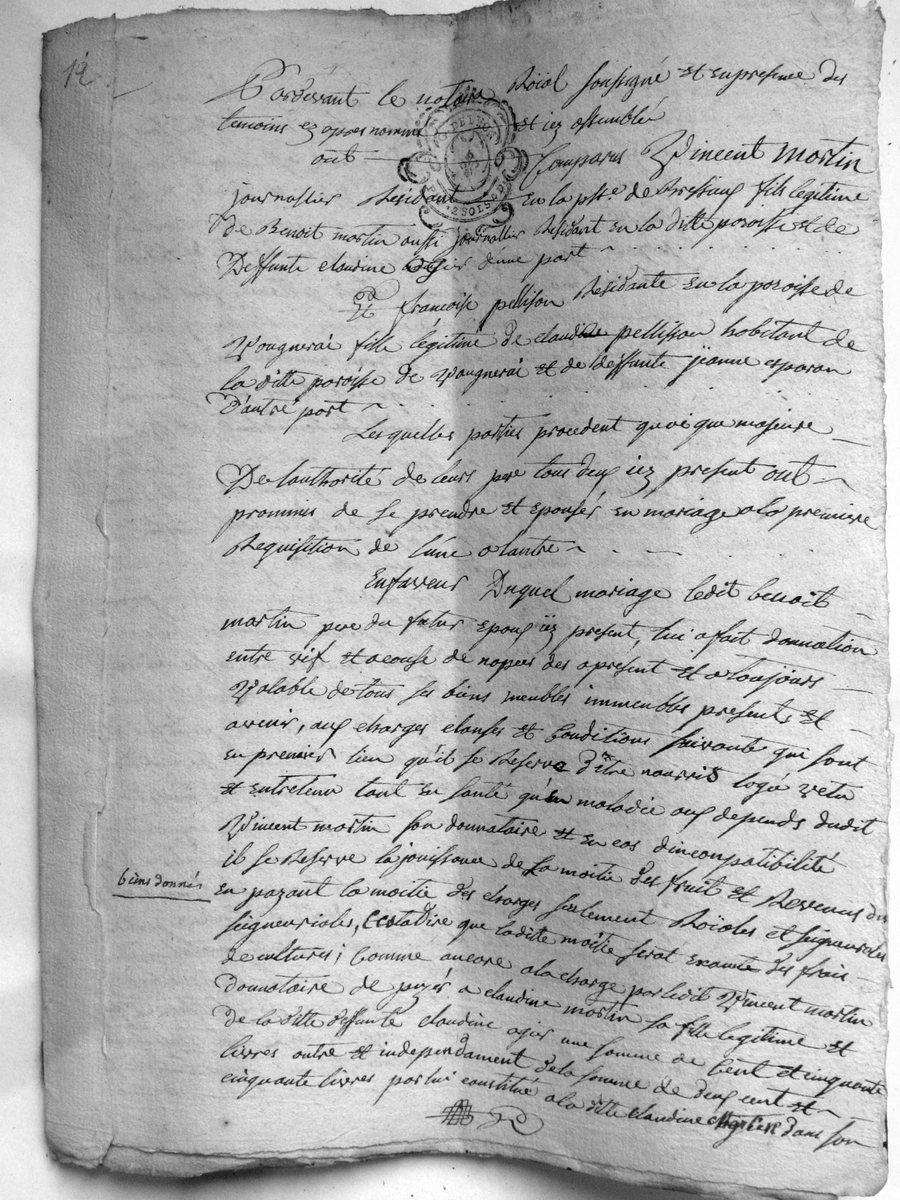 12
Pardevant le notaire Roïal soussigné et en presence des
temoins cy apres nommé et icy assemblé
ont Comparus Vincent Martin
journallier Residant en la psse. de Bressaus fils legitime
de Benoit martin aussi journallier Residant en la ditte paroisse et de
Deffunte claudine d'une part
Et francoise pellison Residante en la paroisse de
Vougnerai fille légitime de claudine pellisson habitant de
la ditte paroisse de Vougnerai et de deffunte jeanne
D'autre part
Lesquelles parties procedent quoi que majeure
De lauthorité de leurs pere tous deux icy present ont
prommis de se prendre et epouser en mariage a la premiere
Requisition de lune a lautre
En faveur Duquel mariage ledit benoit
martin pere du futur epoux icy present, lui a fait donnation
entre vif et a cause de nopces des apresent et a toujours
Valable de tous ses biens meubles immeubles present et
avenir, aux charges clauses et Conditions suivante qui sont
en premier lieu qu'il se Reserve d'être nourris logé vetu
et entretenu tant en santé qu'en maladie aux depends dudit
Vincent martin son donnataire et en cas dincompatibilité
il se Reserve la jouissance de La moitié des fruit et Revenus des
biens donnés
en payant la moitie des charges seulement Roïales et seigneuriales
seigneuriales, cest a dire que ladite moitié serat exempte des frais
de cultures; Comme encore a la charge par ledit Vincent martin
Donnataire de payer a claudine martin sa fille legitime et
de la ditte deffunte claudine agier une somme de Cent et cinquante
livres outre et independament de la somme de deux cent et
cinquante livres par lui constitué a la ditte claudine dans son